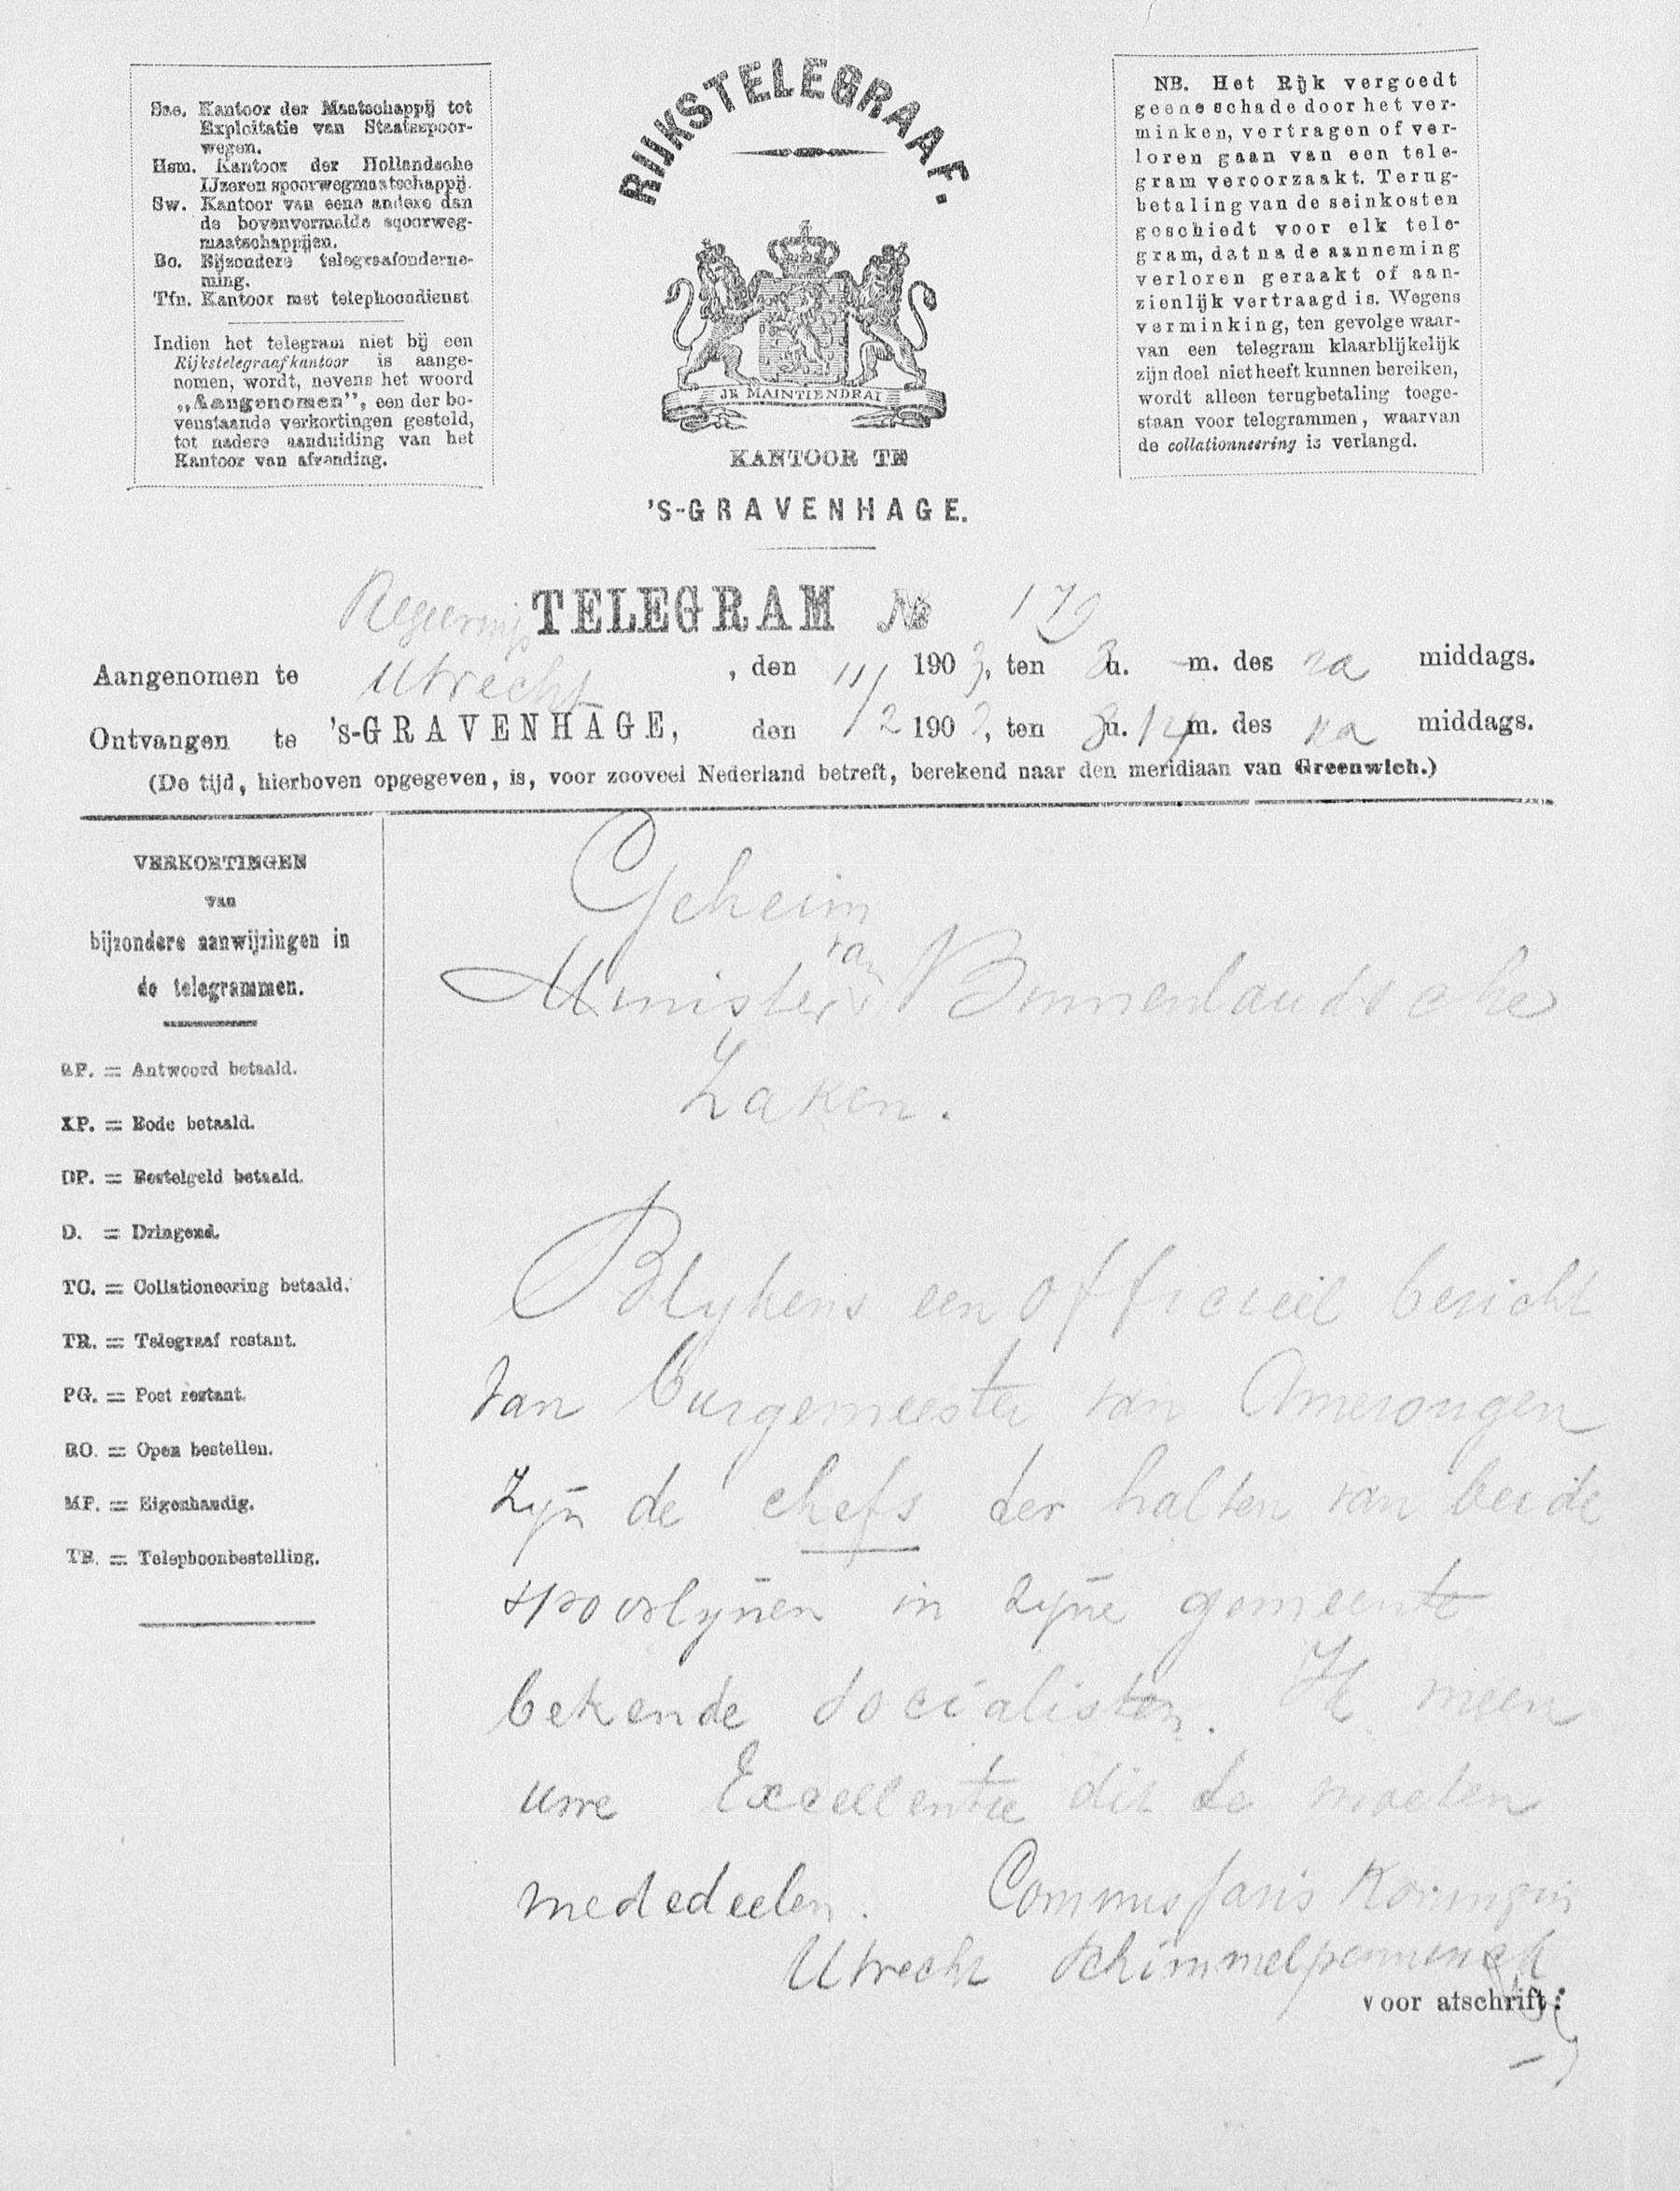 Sss. Kantoor der Maatschappij tot
Exploitatie van Staatsspoor-
wegen.
Hsm. Kantoor der Hollandsche
IJzeren spoorwegmaatschappij.
Sw. Kantoor van eene andere dan
de bovenvermelde spoorweg-
maatschappijen.
Bo. Bijzondere telegraafonderne-
ming.
Tfn. Kantoor met telephoondienst
Indien het telegram niet bij een
Rijkstelegraafkantoor is aange-
nomen, wordt, nevens het woord
„Aangenomen”, een der bo-
venstaande verkortingen gesteld,
tot nadere aanduiding van het
Kantoor van afzending.
RIJKSTELEGRAAF.
JE MAINTIENDRAI
KANTOOR TE
'S-GRAVENHAGE.
NB. Het Rijk vergoedt
geene schade door het ver-
minken, vertragen of ver-
loren gaan van een tele-
gram veroorzaakt. Terug-
betaling van de seinkosten
geschiedt voor elk tele-
gram, dat na de aanneming
verloren geraakt of aan-
zienlijk vertraagd is. Wegens
verminking, ten gevolge waar-
van een telegram klaarblijkelijk
zijn doel niet heeft kunnen bereiken,
wordt alleen terugbetaling toege-
staan voor telegrammen, waarvan
de collationneering is verlangd.
Regeerings TELEGRAM No 179
Aangenomen te Utrecht, den 11/ 1903, ten 8 u. - m. des na middags.
Ontvangen te 's-GRAVENHAGE, den 11/2 190, ten 8 u. 14 m. des na middags.
(De tijd, hierboven opgegeven, is, voor zooveel Nederland betreft, berekend naar den meridiaan van Greenwich.)
VERKORTINGEN
van
bijzondere aanwijzingen in
de telegrammen.
RP. = Antwoord betaald.
XP. = Bode betaald.
DP. = Bestelgeld betaald.
D. = Dringend.
TC. = Collationeering betaald.
TR. = Telegraaf restant.
PG. = Post restant.
RO. = Open bestellen.
MP. = Eigenhandig.
TB. = Telephoonbestelling.
Geheim
Minister van Binnenlandsche
Zaken.
Blykens een officieel bericht
van burgemeester van Amerongen
zyn de chefs der halten van beide
spoorlynen in zyne gemeente
bekende socialisten. Ik meen
uwe Excellentie dit te moeten
mededeelen. Commissaris Koningin
Utrecht Schimmelpenninck
voor afschrift: